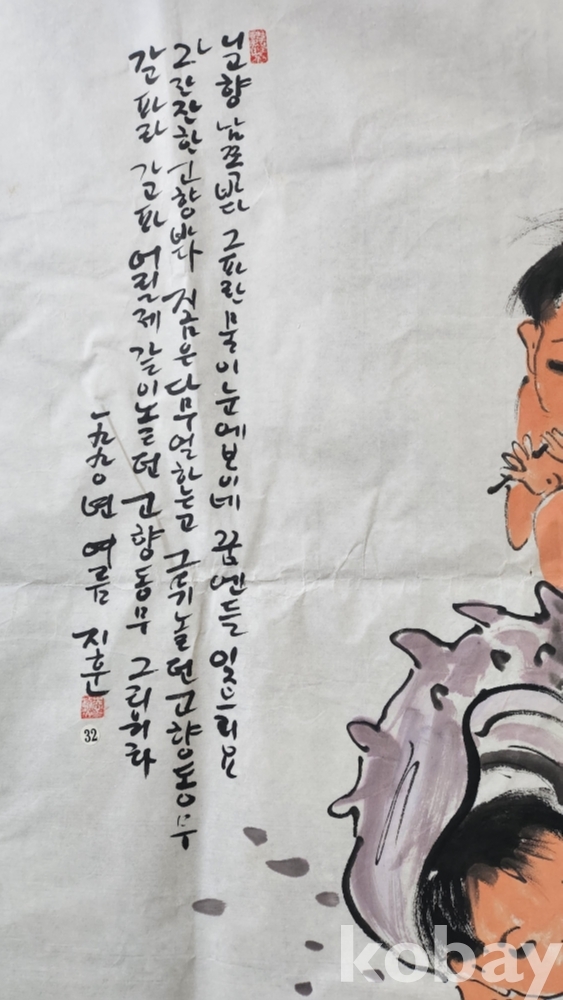 내고향 남쪽바다 그파란물이눈에보이네 꿈엔들 잊으리요
그 잔잔한고향바다 지금은다무얼하는고 그뛰놀던고향동무
가고파라 가고파 어릴제 같이놀던 고향동무 그리워라
一九九〇년 여름 지훈
32
kobay